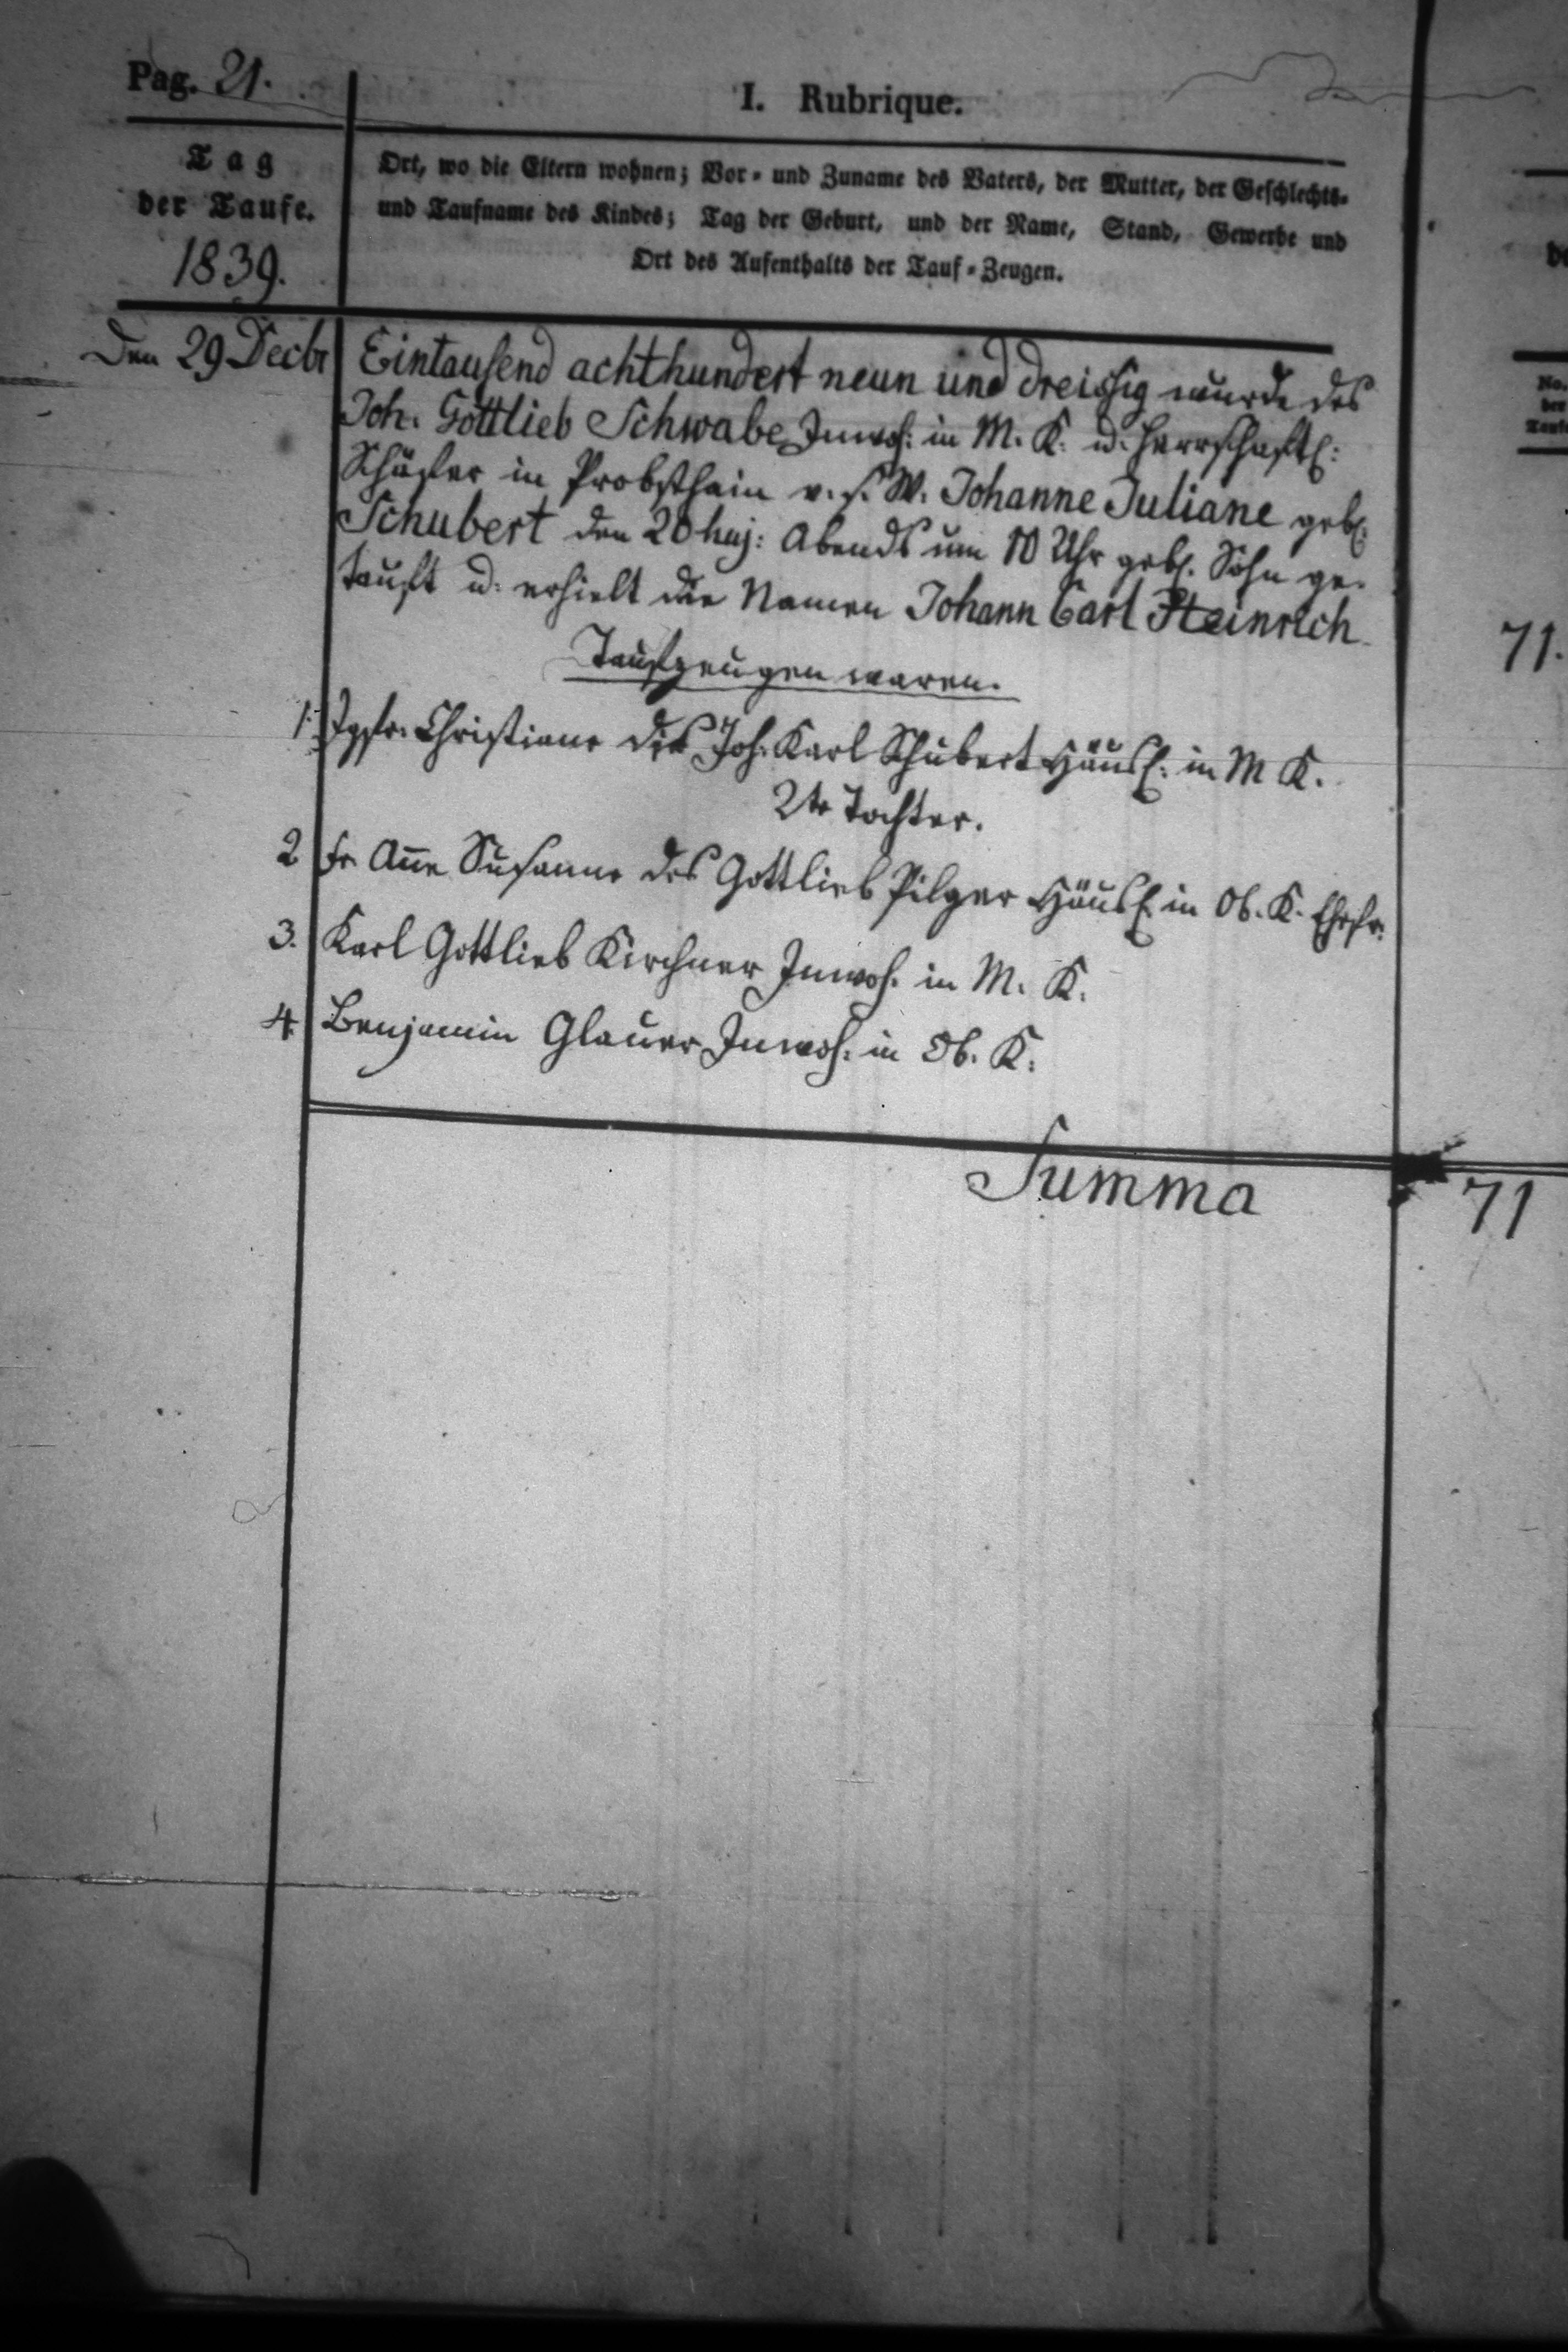 Pag. 21.
I. Rubrique.
Tag
der Taufe.
1839.
Ort, wo die Eltern wohnen; Vor- und Zuname des Vaters, der Mutter, der Geschlechts-
und Taufname des Kindes; Tag der Geburt, und der Name, Stand, Gewerbe und
Ort des Aufenthalts der Tauf-Zeugen.
Den 29 Decbr Eintausend achthundert neun und dreissig wurde des
Joh. Gottlieb Schwabe Inwoh: in M. K. u. herrschaftl:
Schäfer in Probsthain v. s. W. Johanne Juliane geb.
Schubert den 20 huj: Abends um 10 Uhr geb. Sohn ge-
tauft u. erhielt die Namen Johann Carl Heinrich
Taufzeugen waren.
1. Jgfr. Christiane des Joh. Karl Schubert Häusl: in M K.
2te Tochter.
2 Fr Añe Susanne des Gottlieb Pilger Häusl. in Ob. K. Ehefr.
3. Karl Gottlieb Kirchner Inwoh. in M. K.
4. Benjamin Glauer Inwoh: in Ob. K.
Summa
No.
der
Taufe
71.
71